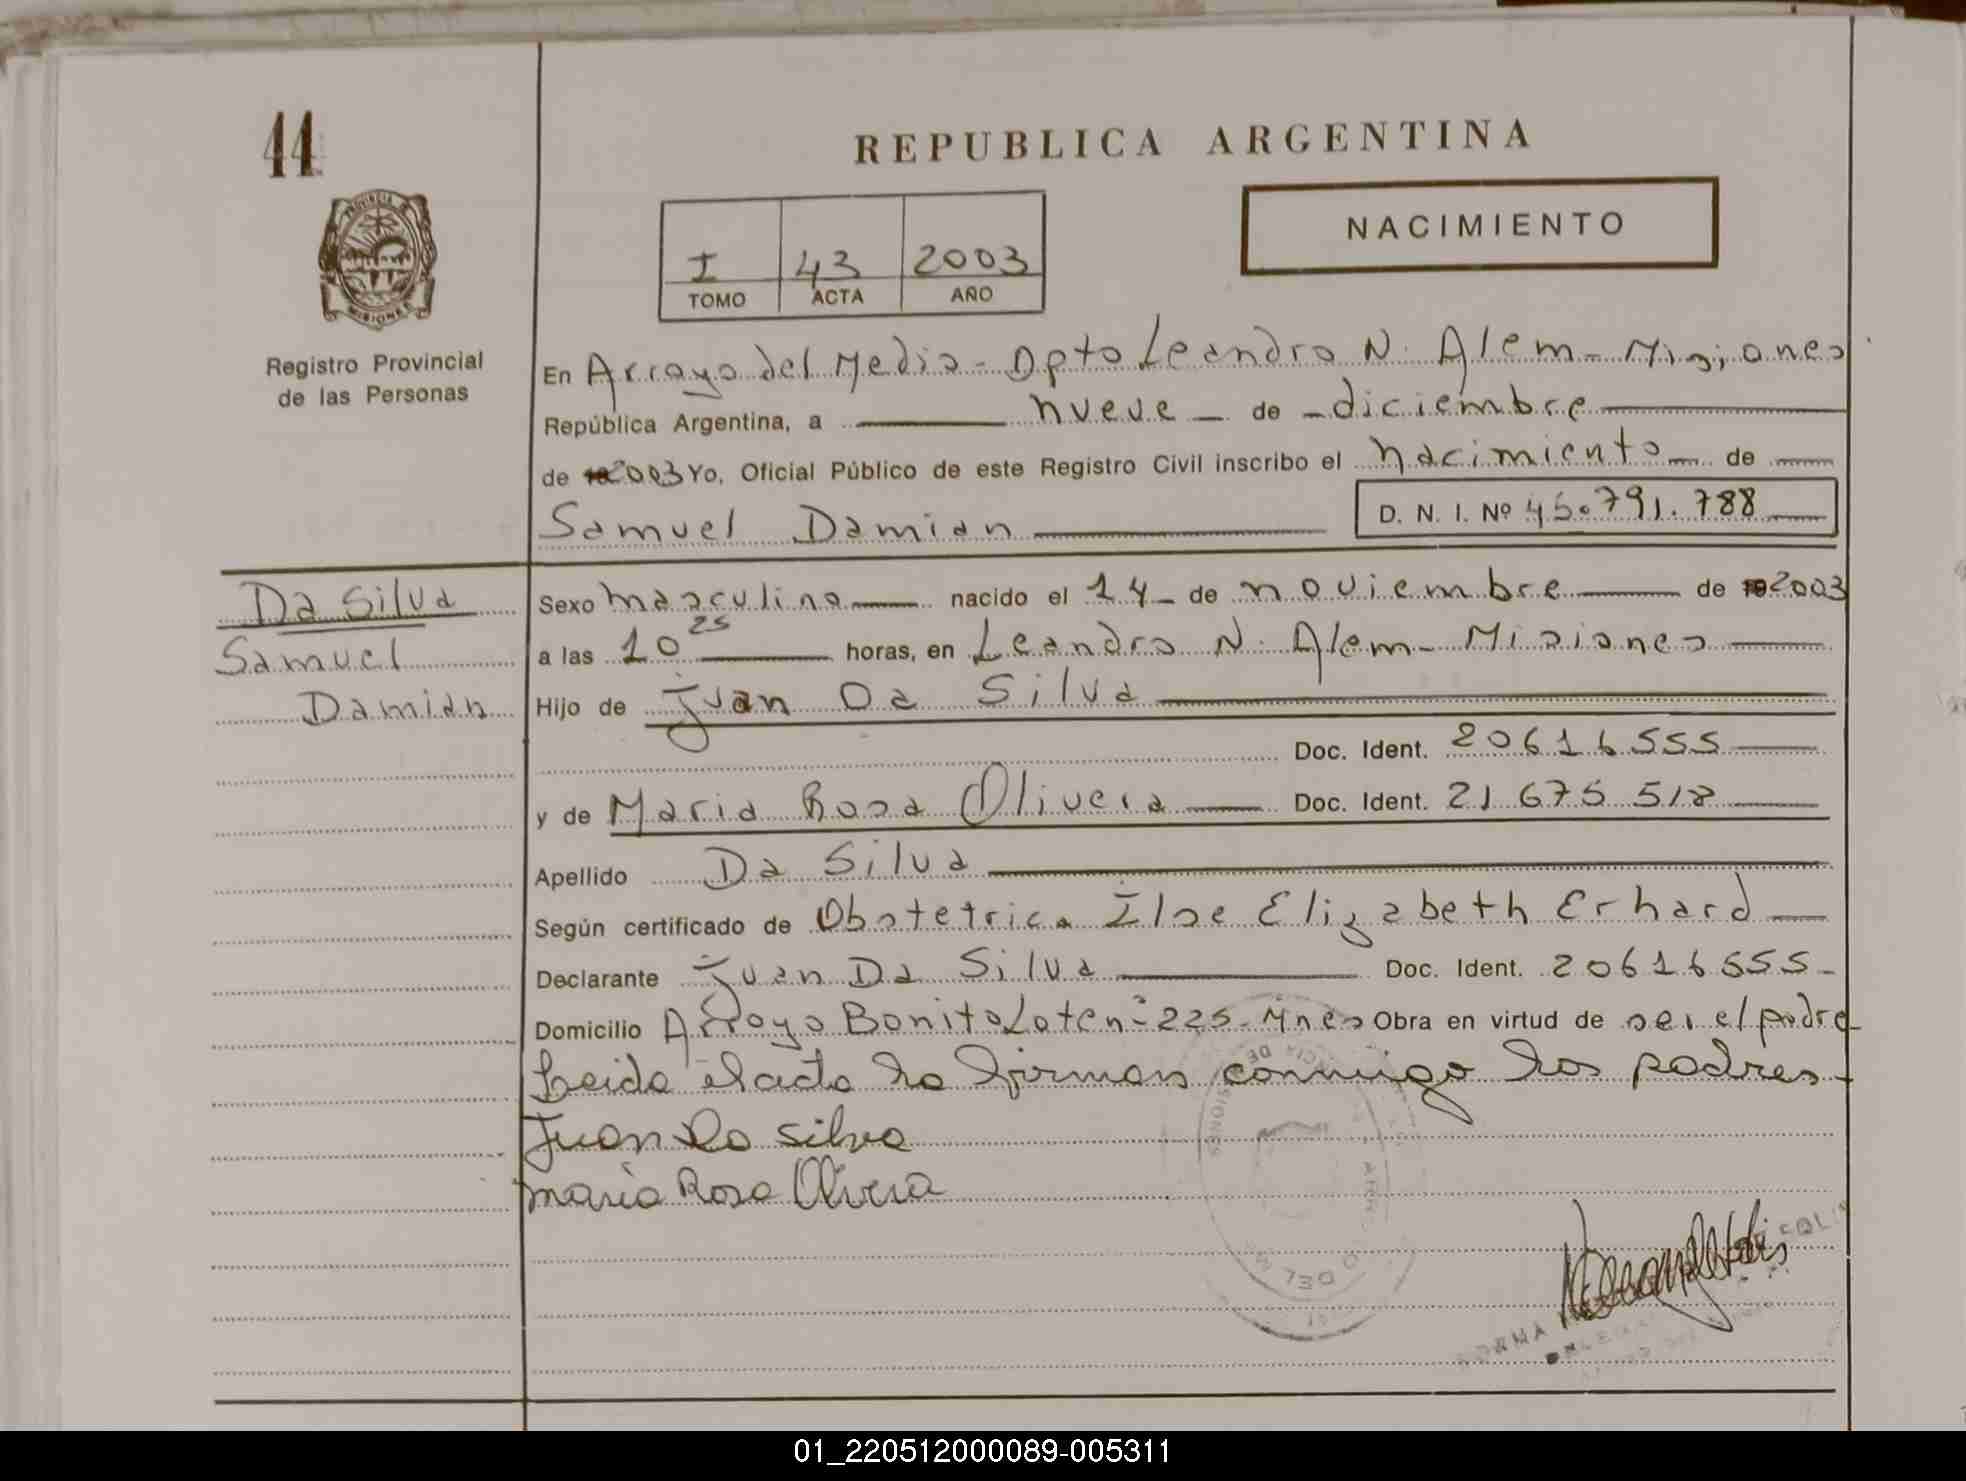 44
REPUBLICA ARGENTINA
NACIMIENTO
I 43 2003
TOMO ACTA AÑO
PROVINCIA DE
MISIONES
Registro Provincial
de las Personas
En Arroyo del Medio - Dpto Leandro N. Alem - Misiones
República Argentina, a nueve de diciembre
de 2003 Yo, Oficial Público de este Registro Civil inscribo el nacimiento de
Samuel Damian D. N. I. Nº 45.791.788
Da Silva
Samuel
Damian
Sexo masculino nacido el 14 de noviembre de 2003
a las 10 25 horas, en Leandro N. Alem - Misiones
Hijo de Juan Da Silva
Doc. Ident. 20616555
y de Maria Rosa Olivera Doc. Ident. 21675518
Apellido Da Silva
Según certificado de Obstetrica Ilse Elizabeth Erhard
Declarante Juan Da Silva Doc. Ident. 20616555
Domicilio Arroyo Bonito Lote nº 225 - Mnes Obra en virtud de ser el padre
Leida el acta la firman conmigo los padres
Juan Da Silva
maria Rosa Olivera
01_220512000089-005311